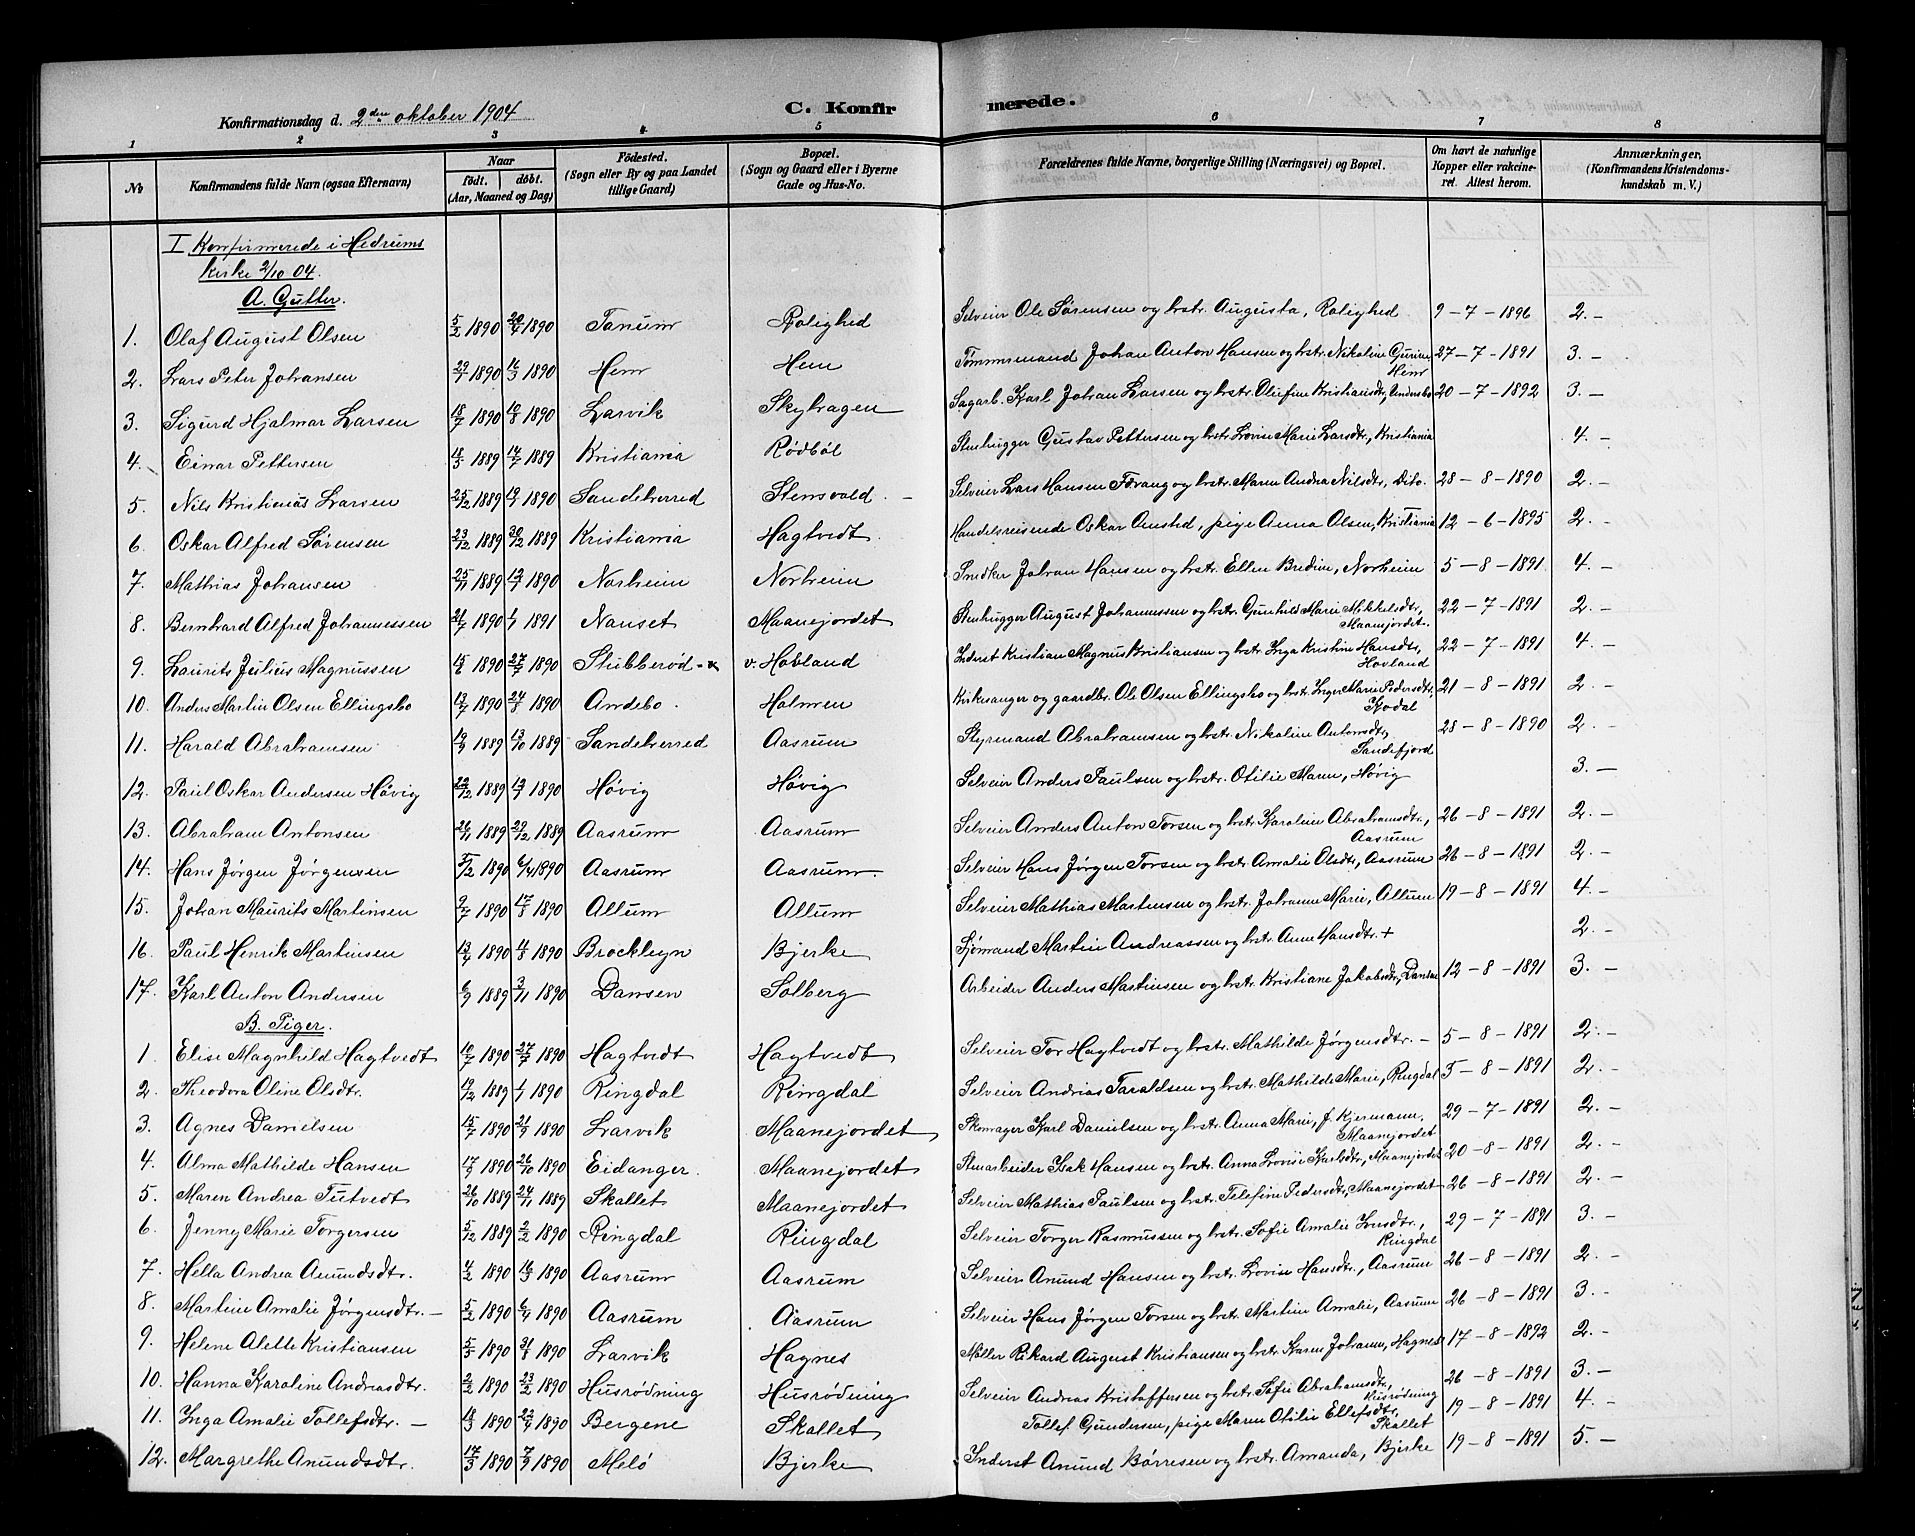 Konfirmationsdag d. 2den oktober 1904
C. Konfirmerede.
1 2 3 4 5 6 7 8
No
Konfirmandens fulde Navn (ogsaa Efternavn)
Naar født. døbt. (Aar, Maaned og Dag)
Fødested. (Sogn eller By og paa Landet tillige Gaard)
Bopæl. (Sogn og Gaard eller i Byerne Gade og Hus-No.
Forældrenes fulde Navne, borgerlige Stilling (Næringsvei) og Bopæl.
Om havt de naturlige Kopper eller vakcineret. Attest herom.
Anmærkninger. (Konfirmandens Kristendomskundskab m. V.)
I Konfirmerede i Hedrums
kirke 2/10 04.
A. Gutter.
1. Olaf August Olsen 5/2 1890 20/4 1890 Tanum Rolighed Selveier Ole Sørensen og hstr. Augusta, Rolighed 9-7-1896 2.-
2. Lars Peter Johansen 29/1 1890 16/3 1890 Hem Hem Tømmermand Johan Anton Hansen og hstr. Nikoline Gurine, Hem 27-7-1891 3.-
3. Sigurd Hjalmar Larsen 18/7 1890 10/8 1890 Larvik Skyhagen Sagarb. Karl Johan Larsen og hstr. Olufine Kristiansdtr, Undersbo 20-7-1892 3.-
4. Einar Pettersen 18/5 1889 14/7 1889 Kristiania Rødbøl Stenhugger Gustav Pettersen og hstr. Lovise Marie Larsdtr., Kristiania 4.-
5. Nils Kristianus Larsen 25/12 1889 19/1 1890 Sandeherred Stensvald - Selveier Lars Hansen Forang og hstr. Maren Andrea Nilsdtr, Dito. 28-8-1890 2.-
6. Oskar Alfred Sørensen 23/12 1889 30/12 1889 Kristiania Hagtvedt. Handelsreisende Oskar Onsted, pige Anna Olsen, Kristiania 12-6-1895 2.-
7. Mathias Johansen 25/11 1889 12/1 1890 Norheim Norheim Snedker Johan Hansen og hstr. Ellen Bredine, Norheim 5-8-1891. 4.-
8. Bernhard Alfred Johannessen 21/7 1890 1/1 1891 Nanset Maanejordet Stenhugger August Johannessen og hstr. Gunhild Marie Mikkelsdtr, Maanejordet. 22-7-1891 2.-
9. Laurits Julius Magnussen 15/6 1890 27/7 1890 Stubberød v. Hovland Inderst Kristian Magnus Kristiansen og hstr. Inga Kristine Hansdtr, Hovland 22-7-1891 4.-
10. Anders Martin Olsen Ellingsbo 13/7 1890 24/8 1890 Andebo. Holmen Kirkesanger og gaardbr. Ole Olsen Ellingsbo og hstr. Inger Marie Pedersdtr, Kodal 21-8-1891 2.-
11. Harald Abrahamsen 19/9 1889 13/10 1889 Sandeherred Aasrum Styrmand Abrahamsen og hstr. Nikoline Antonsdtr, Sandefjord 28-8-1890 2.-
12. Paul Oskar Andersen Høvig 22/12 1889 12/1 1890 Høvig Høvig Selveier Anders Paulsen og hstr. Otilie Maren, Høvig 3.-
13. Abraham Antonsen 26/11 1889 29/12 1889 Aasrum Aasrum Selveier Anders Anton Torsen og hstr. Karoline Abrahamsdtr., Aasrum 26-8-1891 2.-
14. Hans Jørgen Jørgensen 5/2 1890 6/4 1890 Aasrum Aasrum. Selveier Hans Jørgen Torsen og hstr. Amalie Olsdtr, Aasrum 26-8-1891 2.-
15. Johan Maurits Martinsen 9/7 1890 17/8 1890 Allum Allum Selveier Mathias Martinsen og hstr. Johanne Marie, Allum 19-8-1891 4.-
16. Paul Henrik Martinsen 13/4 1890 4/8 1890 Brocklyn Bjerke Sjømand Martin Andreassen og hstr. Anne Hansdtr. + 2.-
17. Karl Anton Andersen 6/9 1889 3/11 1890 Dansen Solberg Arbeider Anders Martinsen og hstr. Kristiane Jakobsdtr, Dansen 12-8-1891 3.-
B. Piger.
1. Elise Magnhild Hagtvedt 10/7 1890 27/7 1890 Hagtvedt Hagtvedt Selveier Tor Hagtvedt og hstr. Mathilde Jørgensdtr. - 5-8-1891 2.-
2. Theodora Oline Olsdtr. 19/12 1889 1/1 1890 Ringdal Ringdal Selveier Andrias Taraldsen og hstr. Mathilde Marie, Ringdal 5-8-1891 2.-
3. Agnes Danielsen 15/7 1890 21/9 1890 Larvik Maanejordet Skomager Karl Danielsen og hstr. Anna Marie, f. Kjermann, Maanejordet 29-7-1891 2.-
4. Alma Mathilde Hansen 17/8 1890 26/10 1890 Eidanger. Maanejordet Stenarbeider Isak Hansen og hstr. Anna Lovise Karlsdtr., Maanejordet 20-8-1891 2.-
5. Maren Andrea Tutvedt 26/10 1889 24/11 1889 Skallet Maanejordet Selveier Mathias Paulsen og hstr. Telefine Pedersdtr, Maanejordet 26-8-1891 2.-
6. Jenny Marie Torgersen 5/12 1889 2/2 1890 Ringdal Ringdal Selveier Torger Rasmussen og hstr. Sofie Amalie Larsdtr., Ringdal 29-7-1891 3.-
7. Hella Andrea Anundsdtr. 4/2 1890 16/3 1890 Aasrum Aasrum Selveier Anund Hansen og hstr. Lovise Hansdtr., Aasrum 26-8-1891 2.-
8. Martine Amalie Jørgensdtr. - 5/2 1890 6/4 1890 Aasrum Aasrum Selveier Hans Jørgen Torsen og hstr. Martine Amalie, Aasrum 26-8-1891 3.-
9. Helene Alette Kristiansen 5/5 1890 31/8 1890 Larvik Hagnes Møller Rikard August Kristiansen og hstr. Karen Johanne, Hagnes 17-8-1892 2.-
10. Hanna Karoline Andreasdtr. 2/2 1890 23/2 1890 Husrødning Husrødning Selveier Andreas Kristoffersen og hstr. Sofie Abrahamsdtr, Husrødning 26-8-1891 3.-
11. Inga Amalie Tollefsdtr. - 18/3 1890 22/4 1890 Bergene Skallet Tollef Gundersen, pige Maren Otilie Ellefsdtr, Skallet 19-8-1891 4.-
12. Margrethe Anundsdtr. 17/3 1890 7/9 1890 Melø Bjerke Inderst Anund Børresen og hstr. Amanda, Bjerke 19-8-1891 5.-